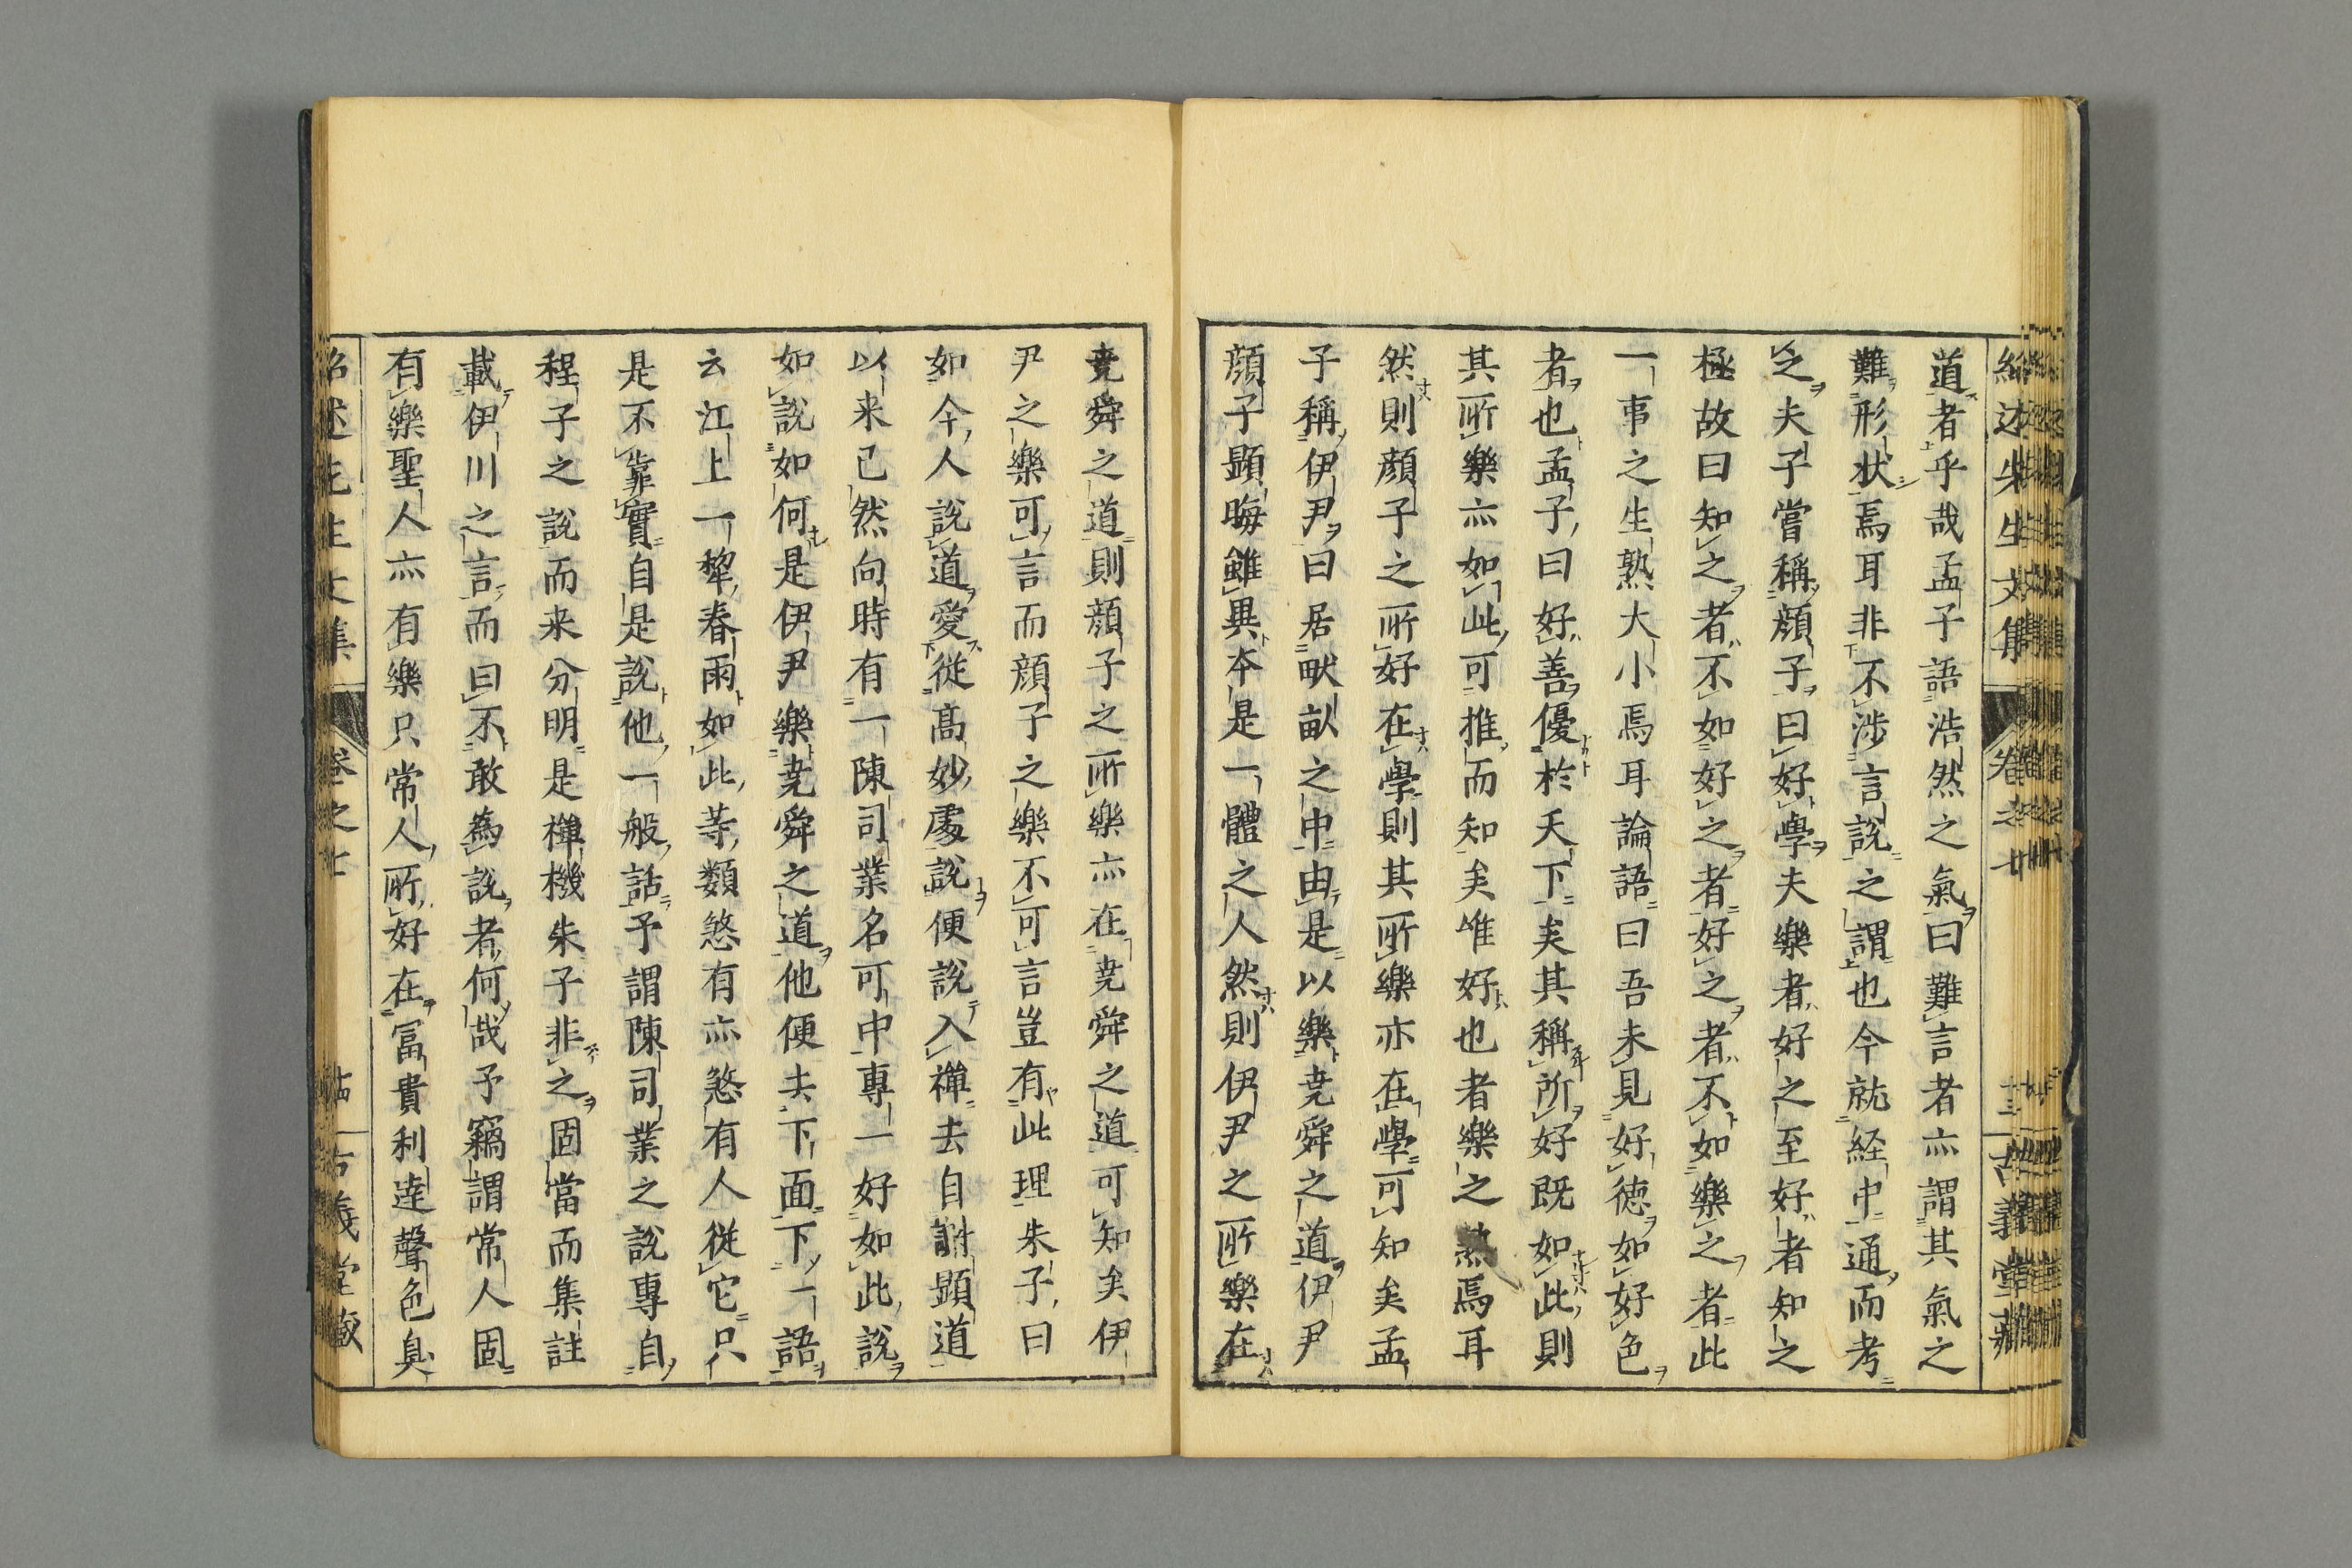 紹述先生文集 卷之十 古義堂藏
道者乎哉孟子語浩然之氣曰難言者亦謂其氣之
難形状焉耳非不渉言說之謂也今就経中通而考
之夫子嘗稱顔子曰好學夫樂者好之至好者知之
極故曰知之者不如好之者好之者不如樂之者此
一事之生熟大小焉耳論語曰吾未見好徳如好色
者也孟子曰好善優於天下矣其稱所好既如此則
其所樂亦如此可推而知矣唯好也者樂之熟焉耳
然則顔子之所好在學則其所樂亦在學可知矣孟
子稱伊尹曰居畎畝之中由是以樂尭舜之道伊尹
顔子顕晦雖異夲是一體之人然則伊尹之所樂在
尭舜之道則顔子之所樂亦在尭舜之道可知矣伊
尹之樂可言而顔子之樂不可言豈有此理朱子曰
如今人說道愛從高妙處說便說入禅去自謝顕道
以来已然向時有一陳司業名可中專一好如此說
如說如何是伊尹樂尭舜之道他便去下面下一語
云江上一犂春雨如此等類煞有亦煞有人從它只
是不靠實自是說他一般話予謂陳司業之說專自
程子之說而来分明是禅機朱子非之固當而集註
載伊川之言而曰不敢為說者何哉予竊謂常人固
有樂聖人亦有樂只常人所好在冨貴利達聲色臭
紹述先生文集 卷之十 古義堂藏